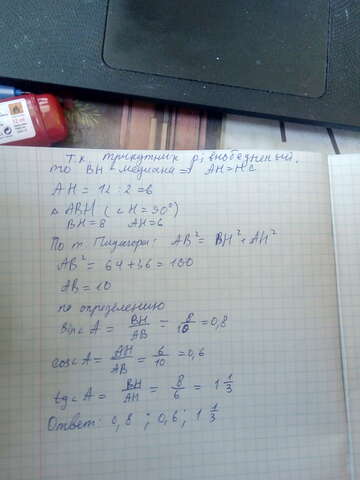 Т.к трикутник рівнобедрений,
то BH - медиана => AH=HC
AH = 12 : 2 = 6
△ ABH (∠H = 90°)
BH = 8 AH = 6
По т. Пифагора: AB² = BH² + AH²
AB² = 64 + 36 = 100
AB = 10
по определению
sin∠A = BH/AB = 8/10 = 0,8
cos∠A = AH/AB = 6/10 = 0,6
tg∠A = BH/AH = 8/6 = 1 1/3
Ответ: 0,8 ; 0,6 ; 1 1/3